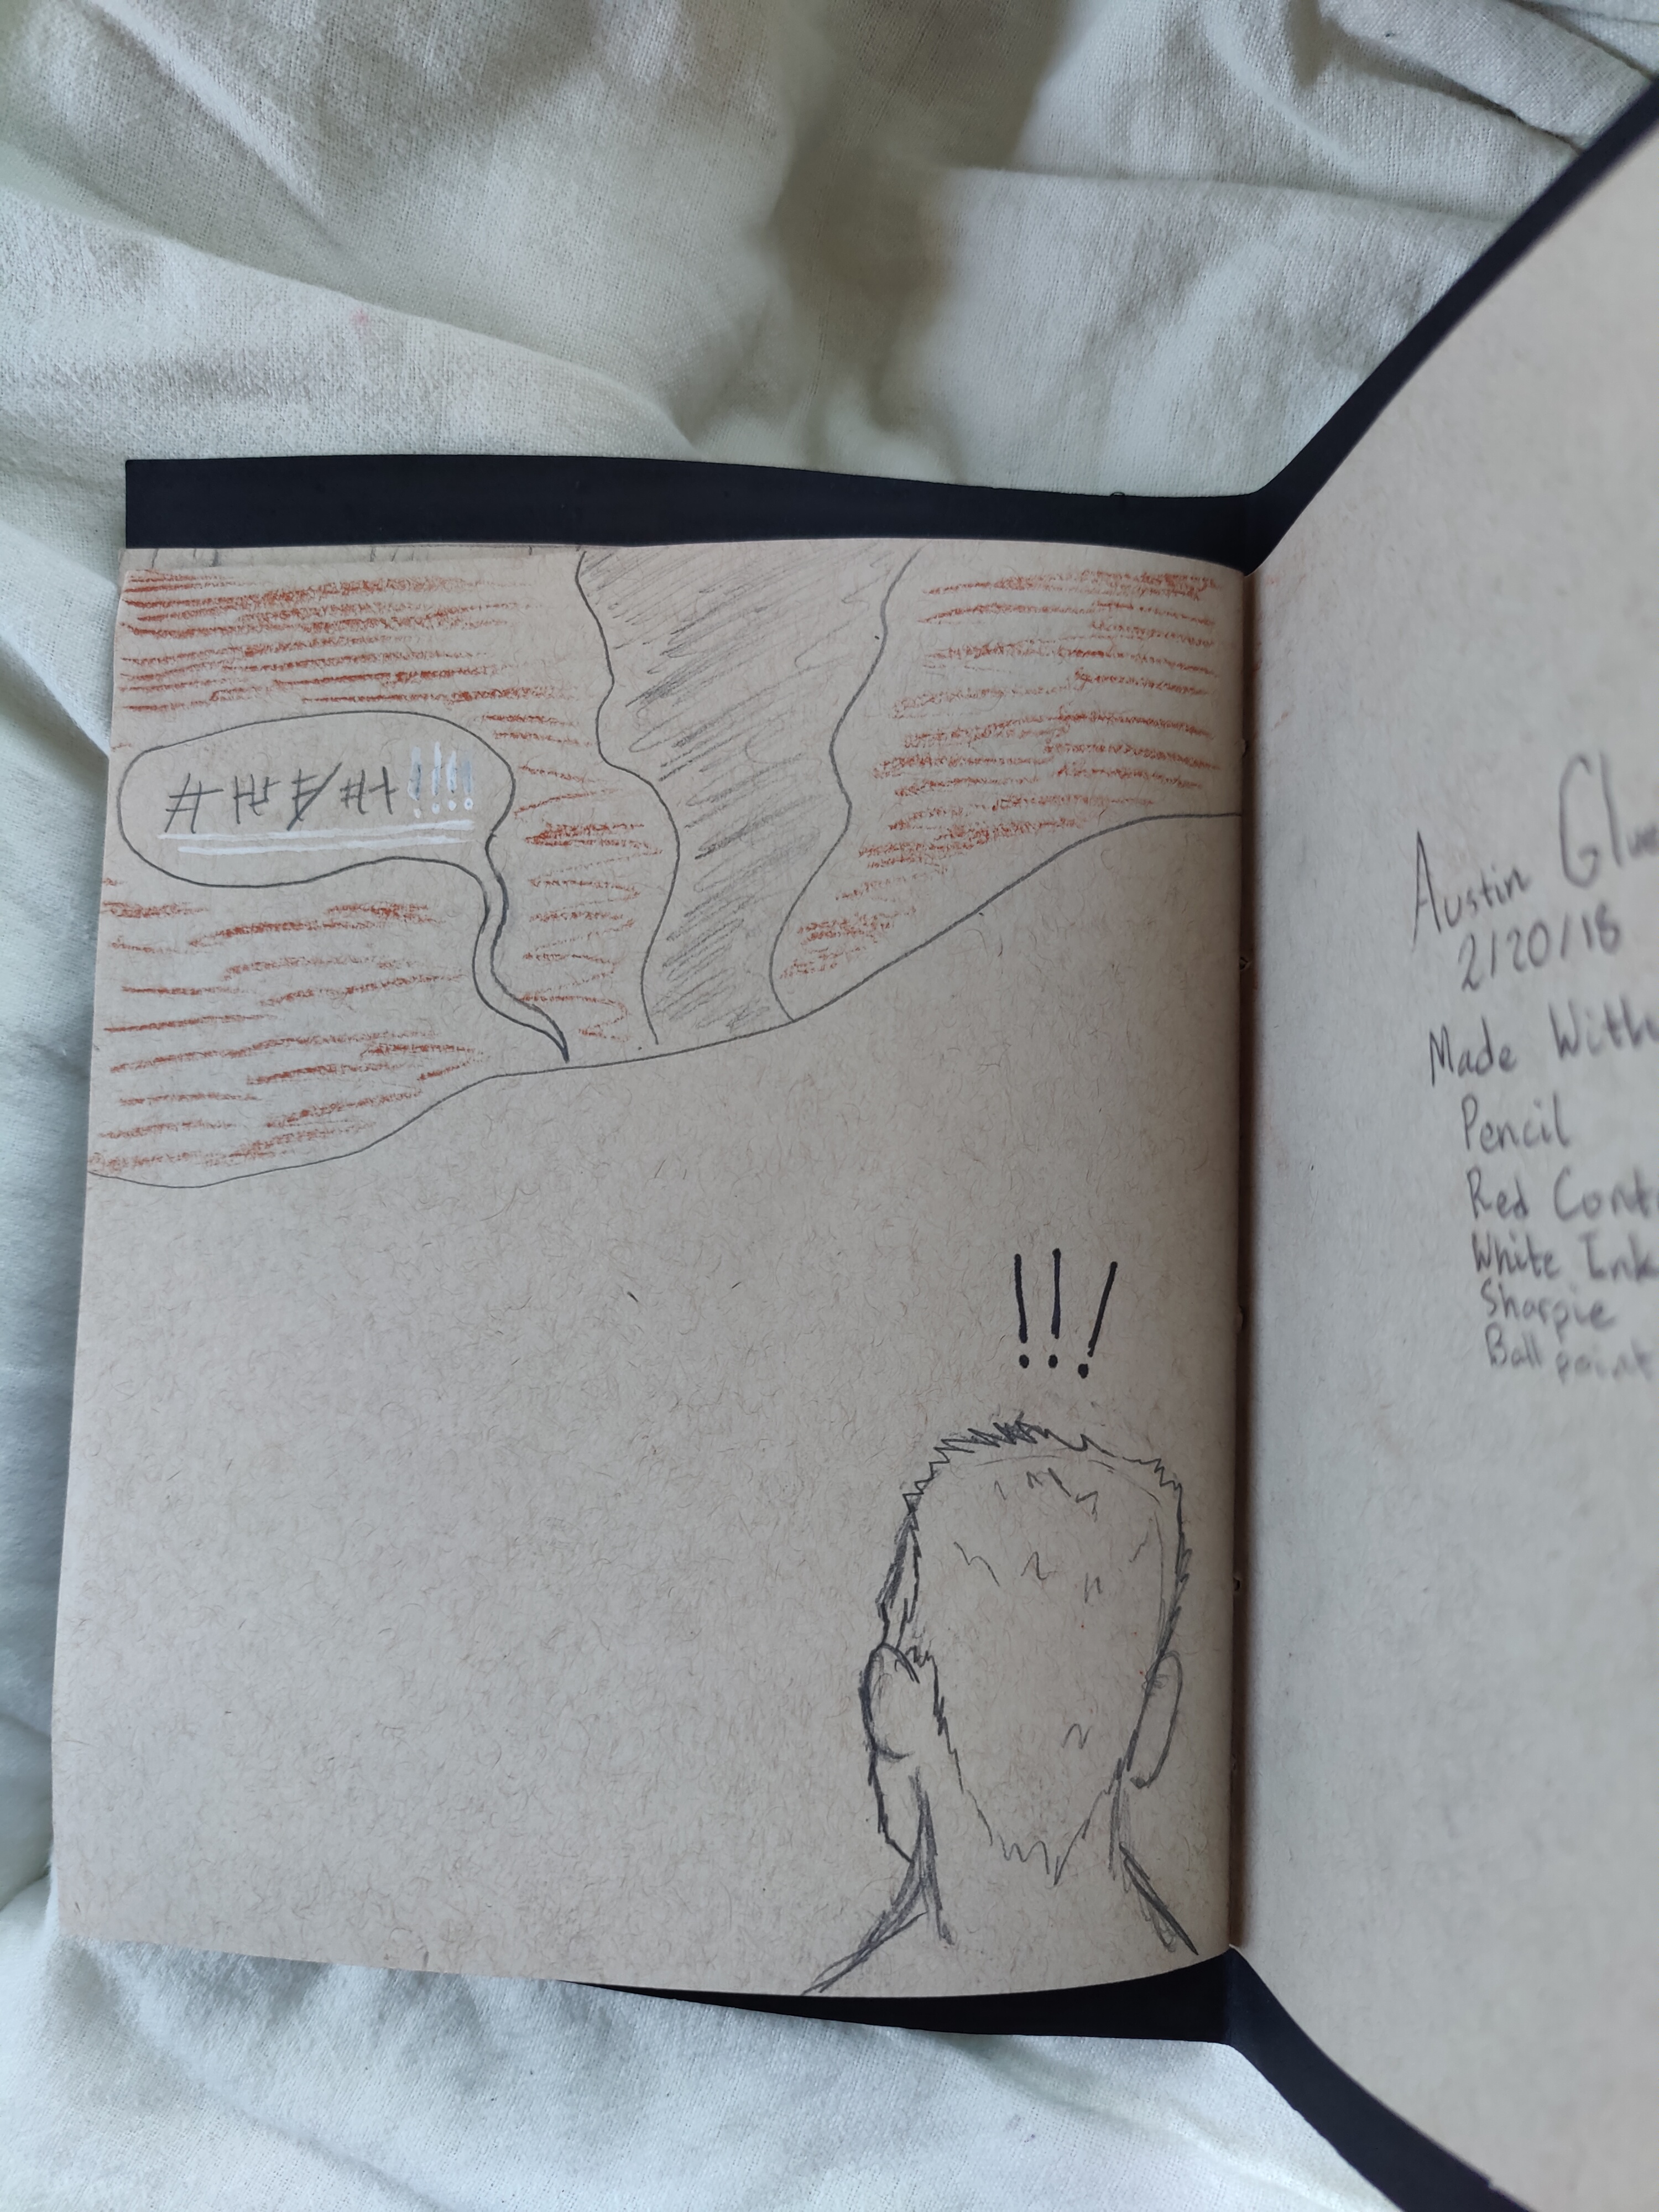 # # # # #!!!!
!!!
Austin
2/20/18
Made With
Pencil
Red
White Ink
Sharpie
Ball point